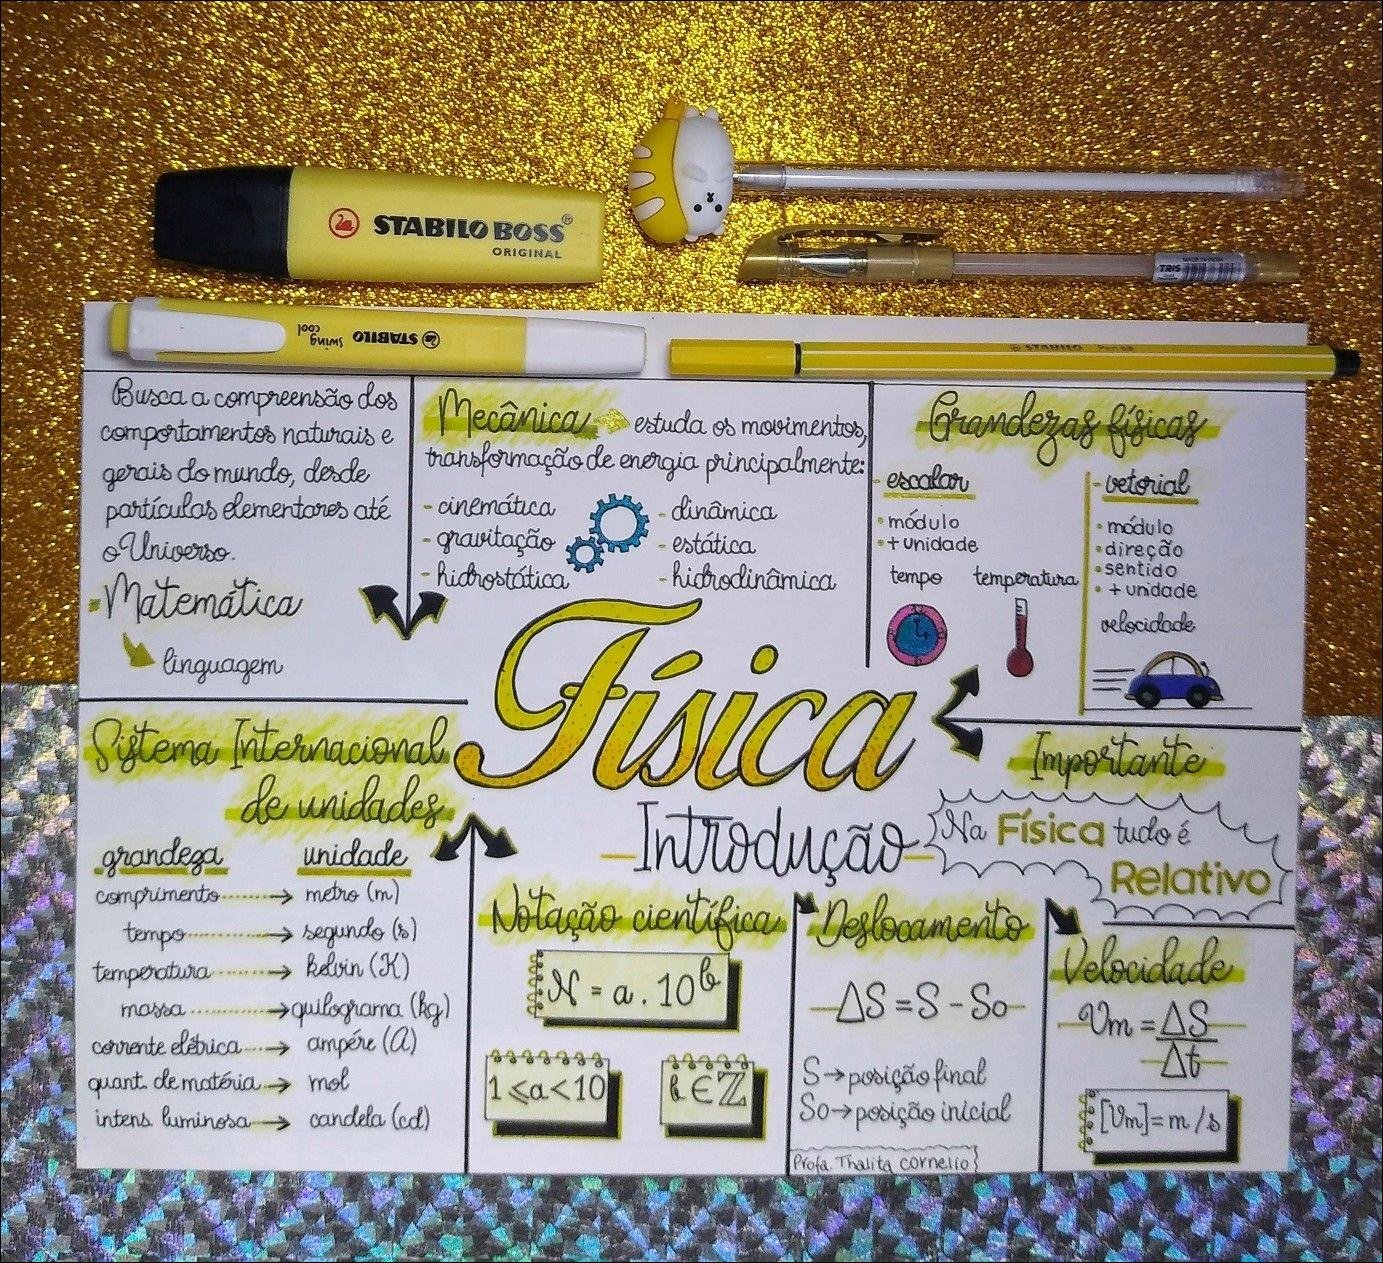 STABILO BOSS®
ORIGINAL
MADE IN INDIA
TRIS
STABILO
swing
cool
STABILO Pen 68
Busca a compreensão dos
comportamentos naturais e
gerais do mundo, desde
partículas elementares até
o Universo.
Matemática
linguagem
Mecânica estuda os movimentos,
transformação de energia principalmente:
- cinemática
- gravitação
- hidrostática
- dinâmica
- estática
- hidrodinâmica
Grandezas físicas
- escalar
• módulo
• + unidade
tempo temperatura
- vetorial
• módulo
• direção
• sentido
• + unidade
velocidade
Física
Introdução
Importante
Na Física tudo é
Relativo
Sistema Internacional
de unidades
grandeza unidade
comprimento → metro (m)
tempo → segundo (s)
temperatura → kelvin (K)
massa → quilograma (kg)
corrente elétrica → ampére (A)
quant. de matéria → mol
intens. luminosa → candela (cd)
Notação científica
N = a . 10^b
1 ⩽ a < 10
b ∈ ℤ
Deslocamento
ΔS = S - So
S → posição final
So → posição inicial
Profa. Thalita Cornelio
Velocidade
Vm = ΔS
Δt
[Vm] = m/s